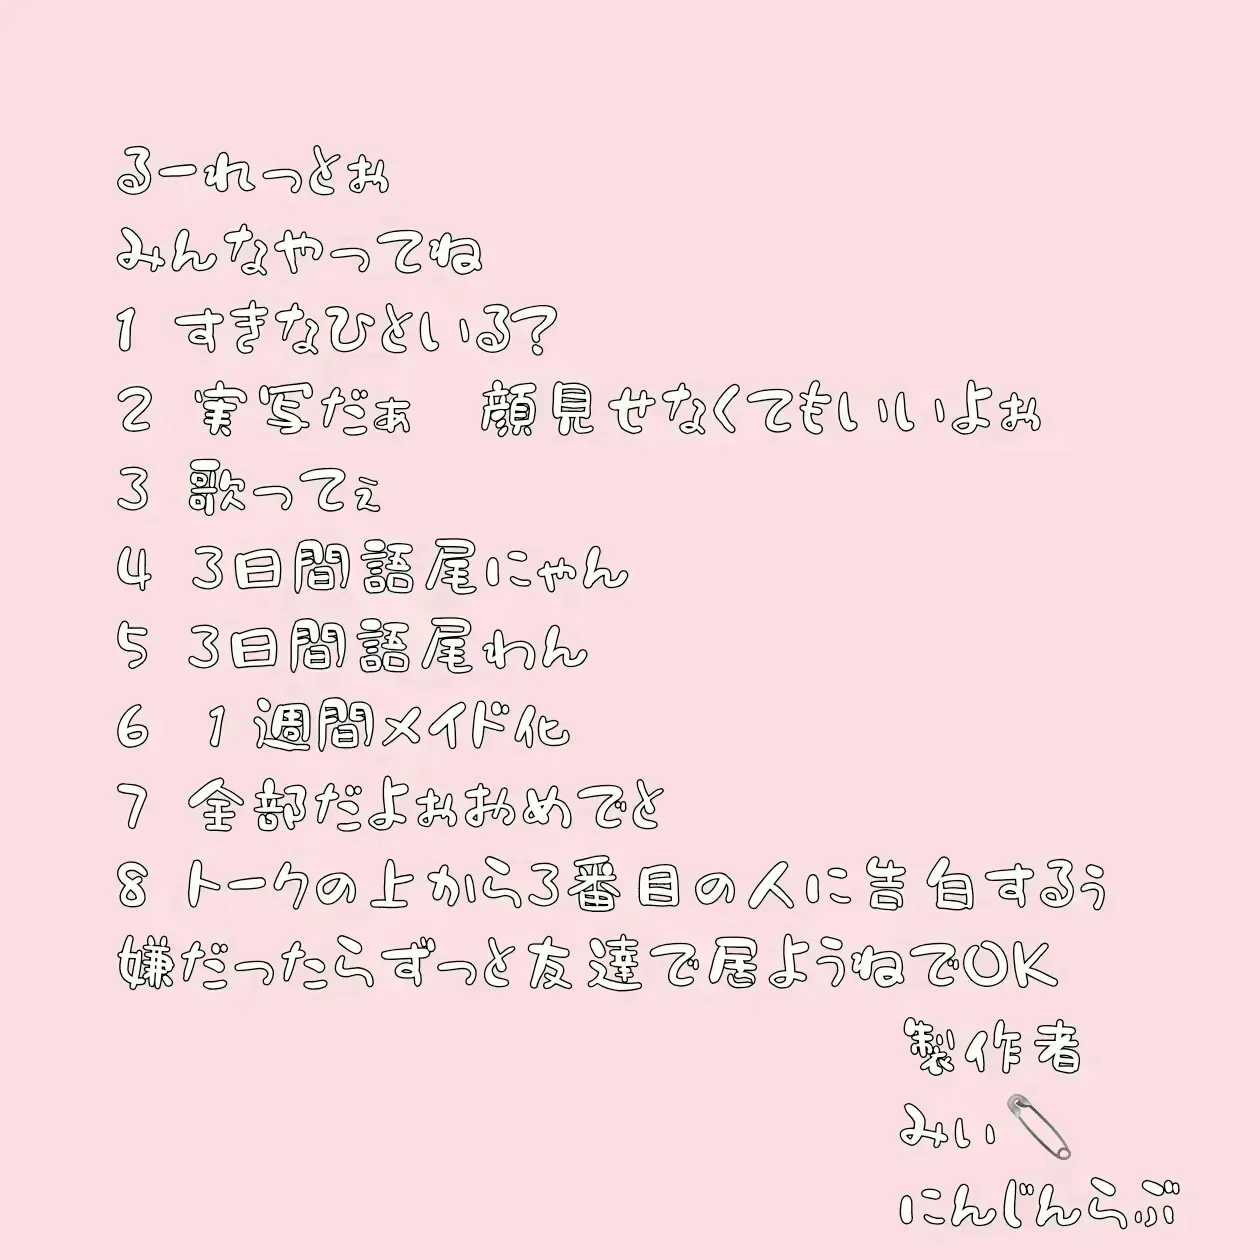 るーれっとぉ
みんなやってね
1 すきなひといる?
2 実写だぁ 顔見せなくてもいいよぉ
3 歌ってぇ
4 3日間語尾にゃん
5 3日間語尾わん
6 1週間メイド化
7 全部だよぉおめでと
8 トークの上から3番目の人に告白するぅ
嫌だったらずっと友達で居ようねでOK
製作者
みい🧷
にんじんらぶ